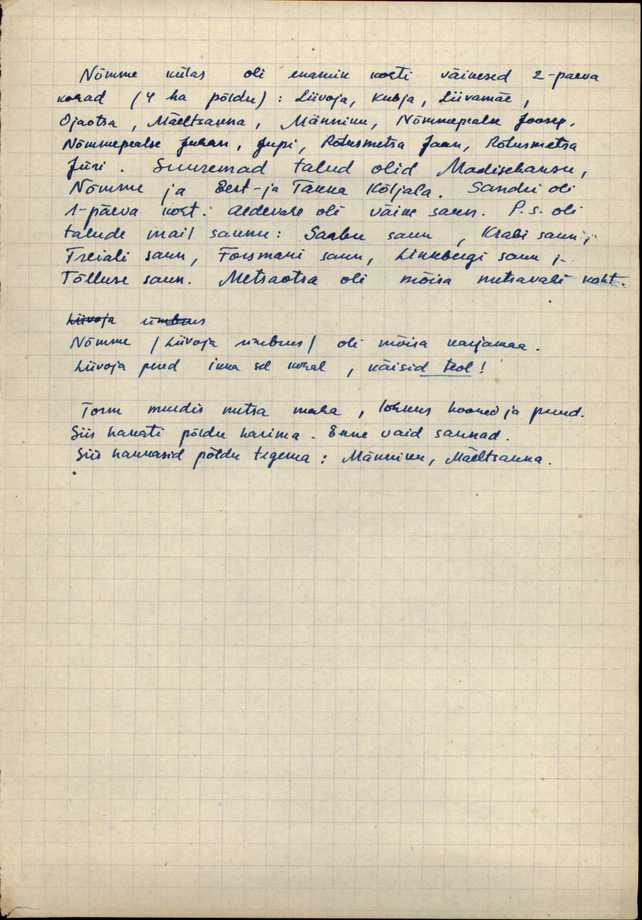 Nõmme külas oli enamik kohti väikesed 2-päeva
kohad (4 ha põldu): Liivoja, Kubja, Liivamäe,
Ojaotsa, Mäeltsanna, Männiku, Nõmmepealse Joosep,
Nõmmepealse Juhan, Jupi, Rõtusmetsa Jaan, Rõtusmetsa
Jüri. Suuremad talud olid Madisehansu,
Nõmme ja Eest- ja Tanna Kõljala. Sandri oli
1-päeva koht. Aedevahe oli väike saun. P.s. oli
talude mail saunu: Saabu saun, Krabi saun;
Treiali saun, Forsmani saun, Linnebergi saun;
Tõlluse saun. Metsaotsa oli mõisa metsavahi koht.
Liivoja ümbrus
Nõmme /Liivoja ümbrus/ oli mõisa karjamaa.
Liivoja pered sel korral, käisid teol!
Torm murdis metsa maha, lõhkus hooned ja puud.
Siis hakati põldu harima. Enne vaid saunad.
Siis hakkasid põldu tegema: Männiku, Mäeltsanna.